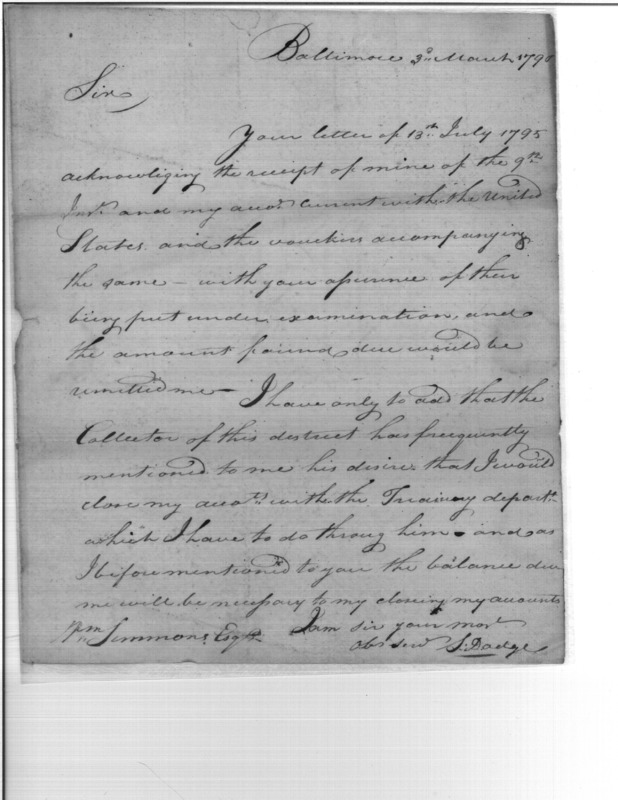 Baltimore 3d March 179
Sir
Your letter of 13th July 1795
acknowliging the receipt of mine of the 9th
Inst. and my accot. Current with the United
States and the vouchers accompanying
the same – with your assurence of their
being put under examination, and
the amount found due would be
remitted me – I have only to add that the
Collector of this destrect has frequently
mentioned to me his desire that I would
close my accots. with the Treasury departt.
which I have to do throug him – and as
I before mention'd to you the balance due
me will be necessary to my closing my accounts
Wm Simmons Esqr. I am sir your most
obt servt S. Dodge